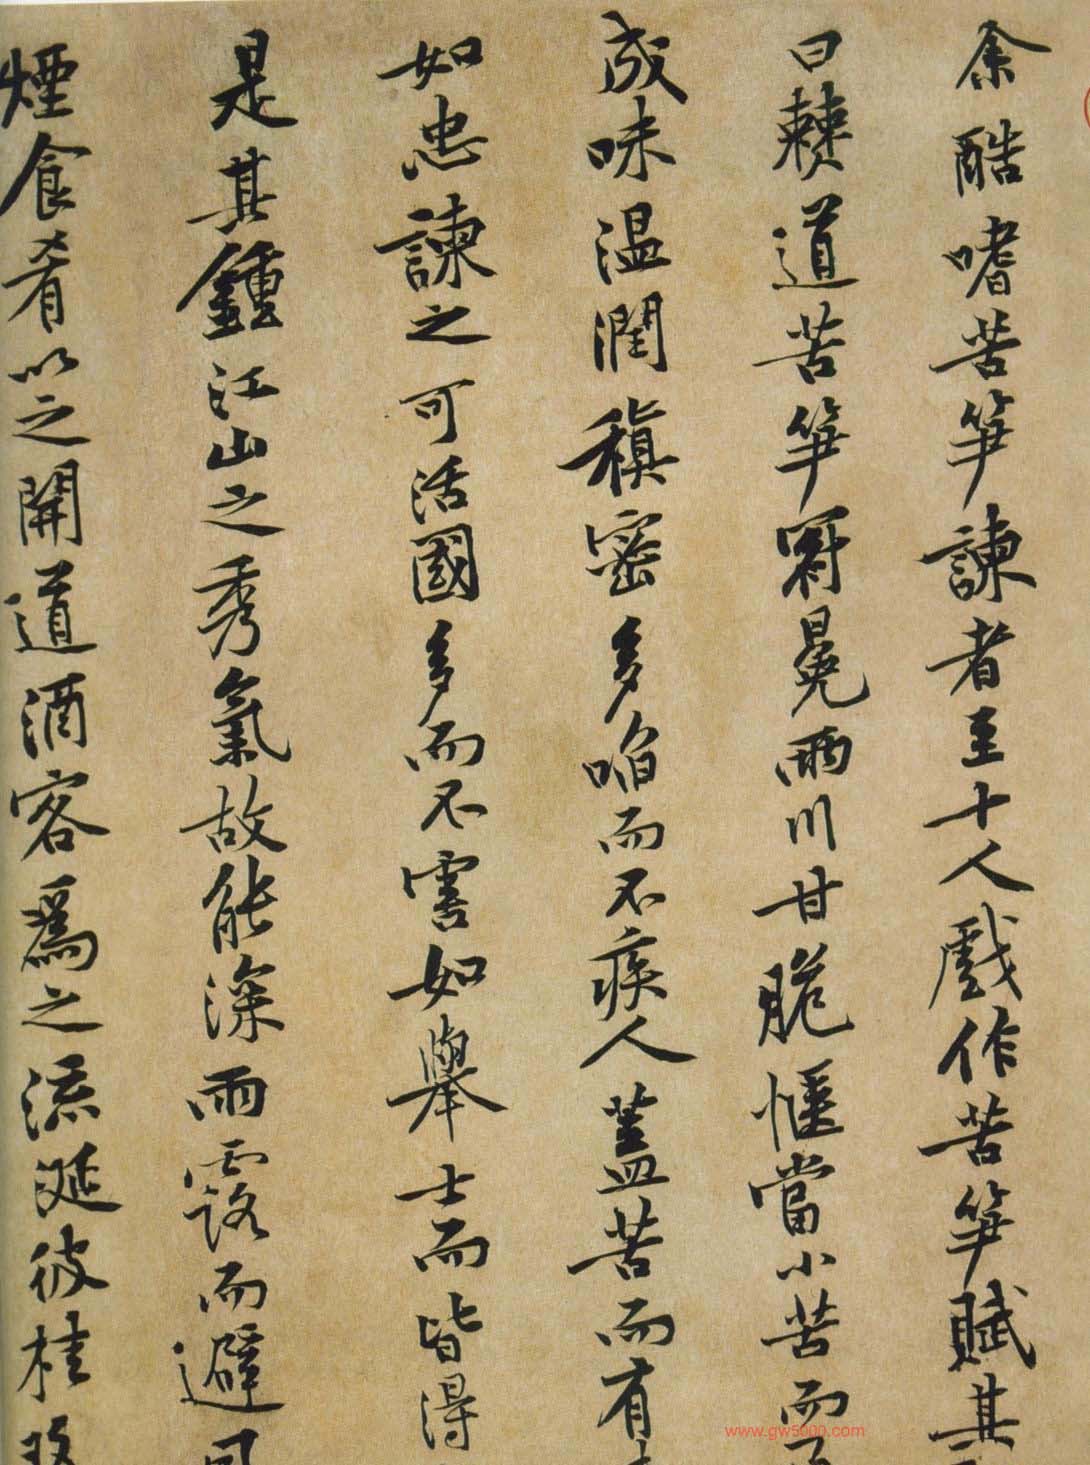 余酷嗜苦笋諫者至十人戲作苦笋賦其
曰僰道苦笋冠冕兩川甘脆愜當小苦而
成味温潤稹密多啗而不疾人蓋苦而有
如忠諫之可活國多而不害如舉士而皆得
是其鍾江山之秀氣故能深雨露而避
煙食肴以之開道酒客爲之流涎彼桂
www.gw5000.com